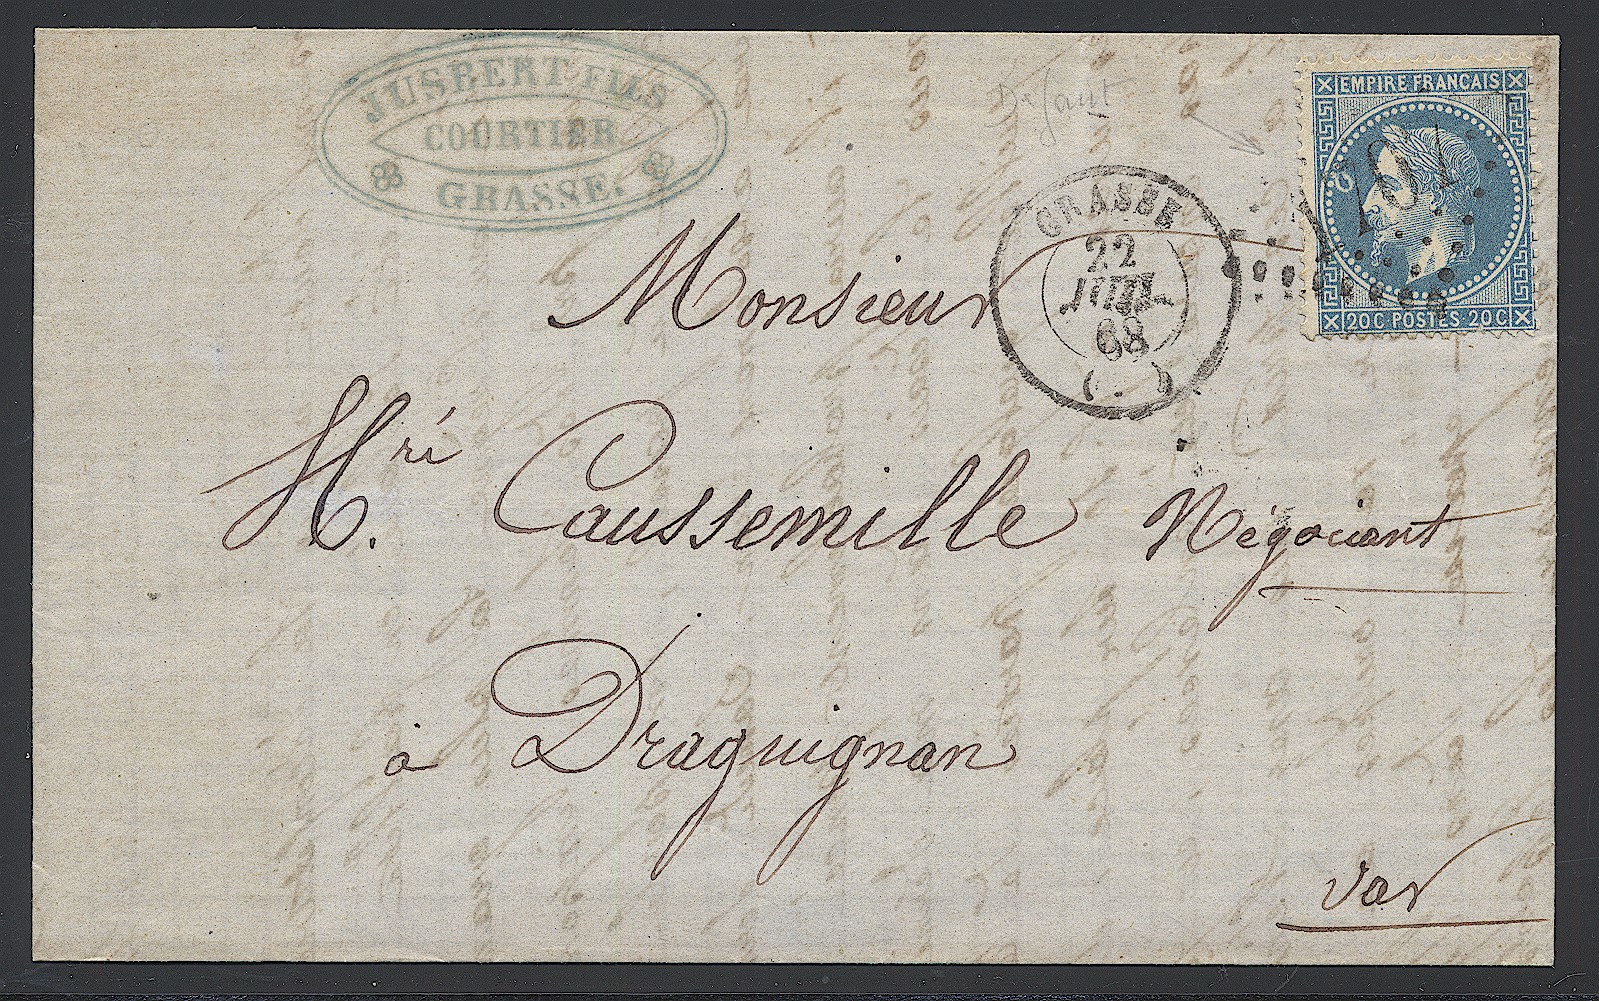 JUSBERT FILS
COURTIER
GRASSE.
EMPIRE FRANCAIS
20C POSTES 20C
GRASSE
22
68
Monsieur
Hri Caussemille Négociant
à Draguignan
Var